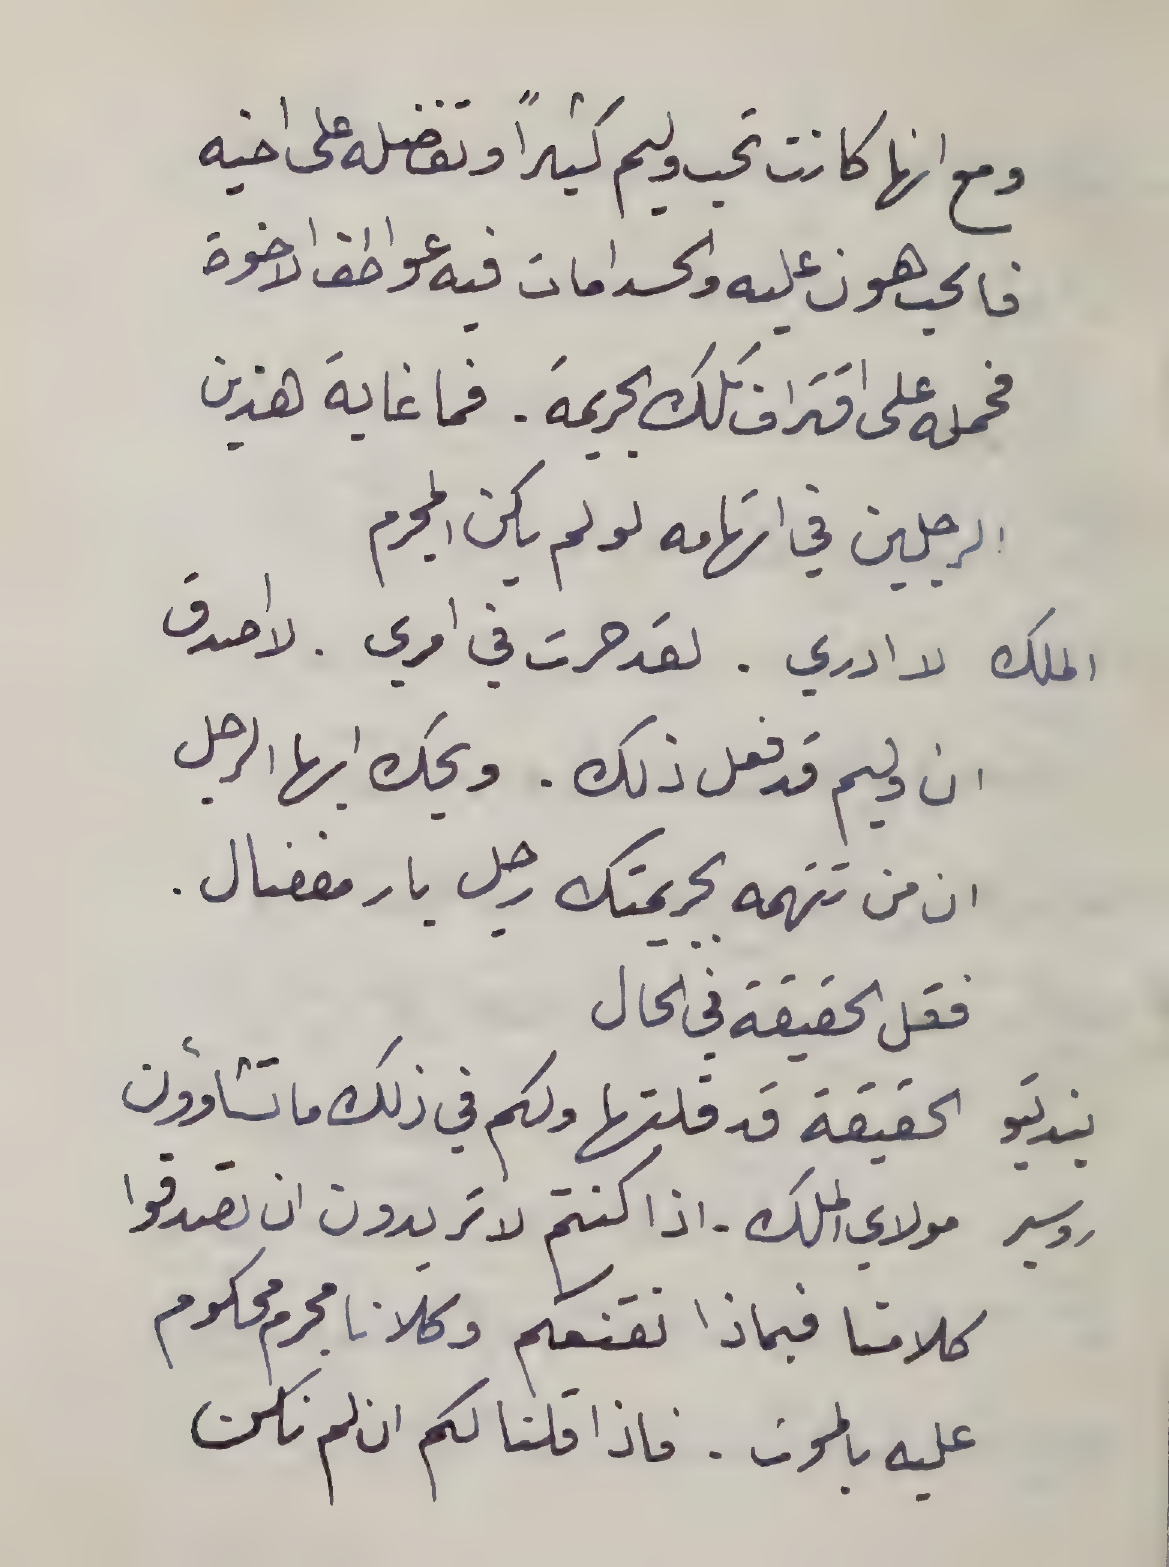 ومع انها كانت تحب وليم كثيراً وتفضله على اخيه
فالحب هون عليه والحسد امات فيه عواطف الاخوة
فحمله على اقتراف تلك الجريمة . فما غاية هذين
الرجلين في اتهامه لو لم يكن المجرم
الملك لا ادري . لقد حرت في امري . لا اصدق
ان وليم قد فعل ذلك . ويحك ايها الرجل
ان من تتهمه بجريمتك رجل بار مفضال .
فقل الحقيقة في الحال
بندتيو الحقيقة قد قلتها ولكم في ذلك ما تشاؤون
روسير مولاي الملك . اذا كنتم لا تريدون ان تصدقوا
كلامنا فبماذا نقنعكم وكلانا مجرم محكوم
عليه بالموت . فاذا قلنا لكم ان لم نكن